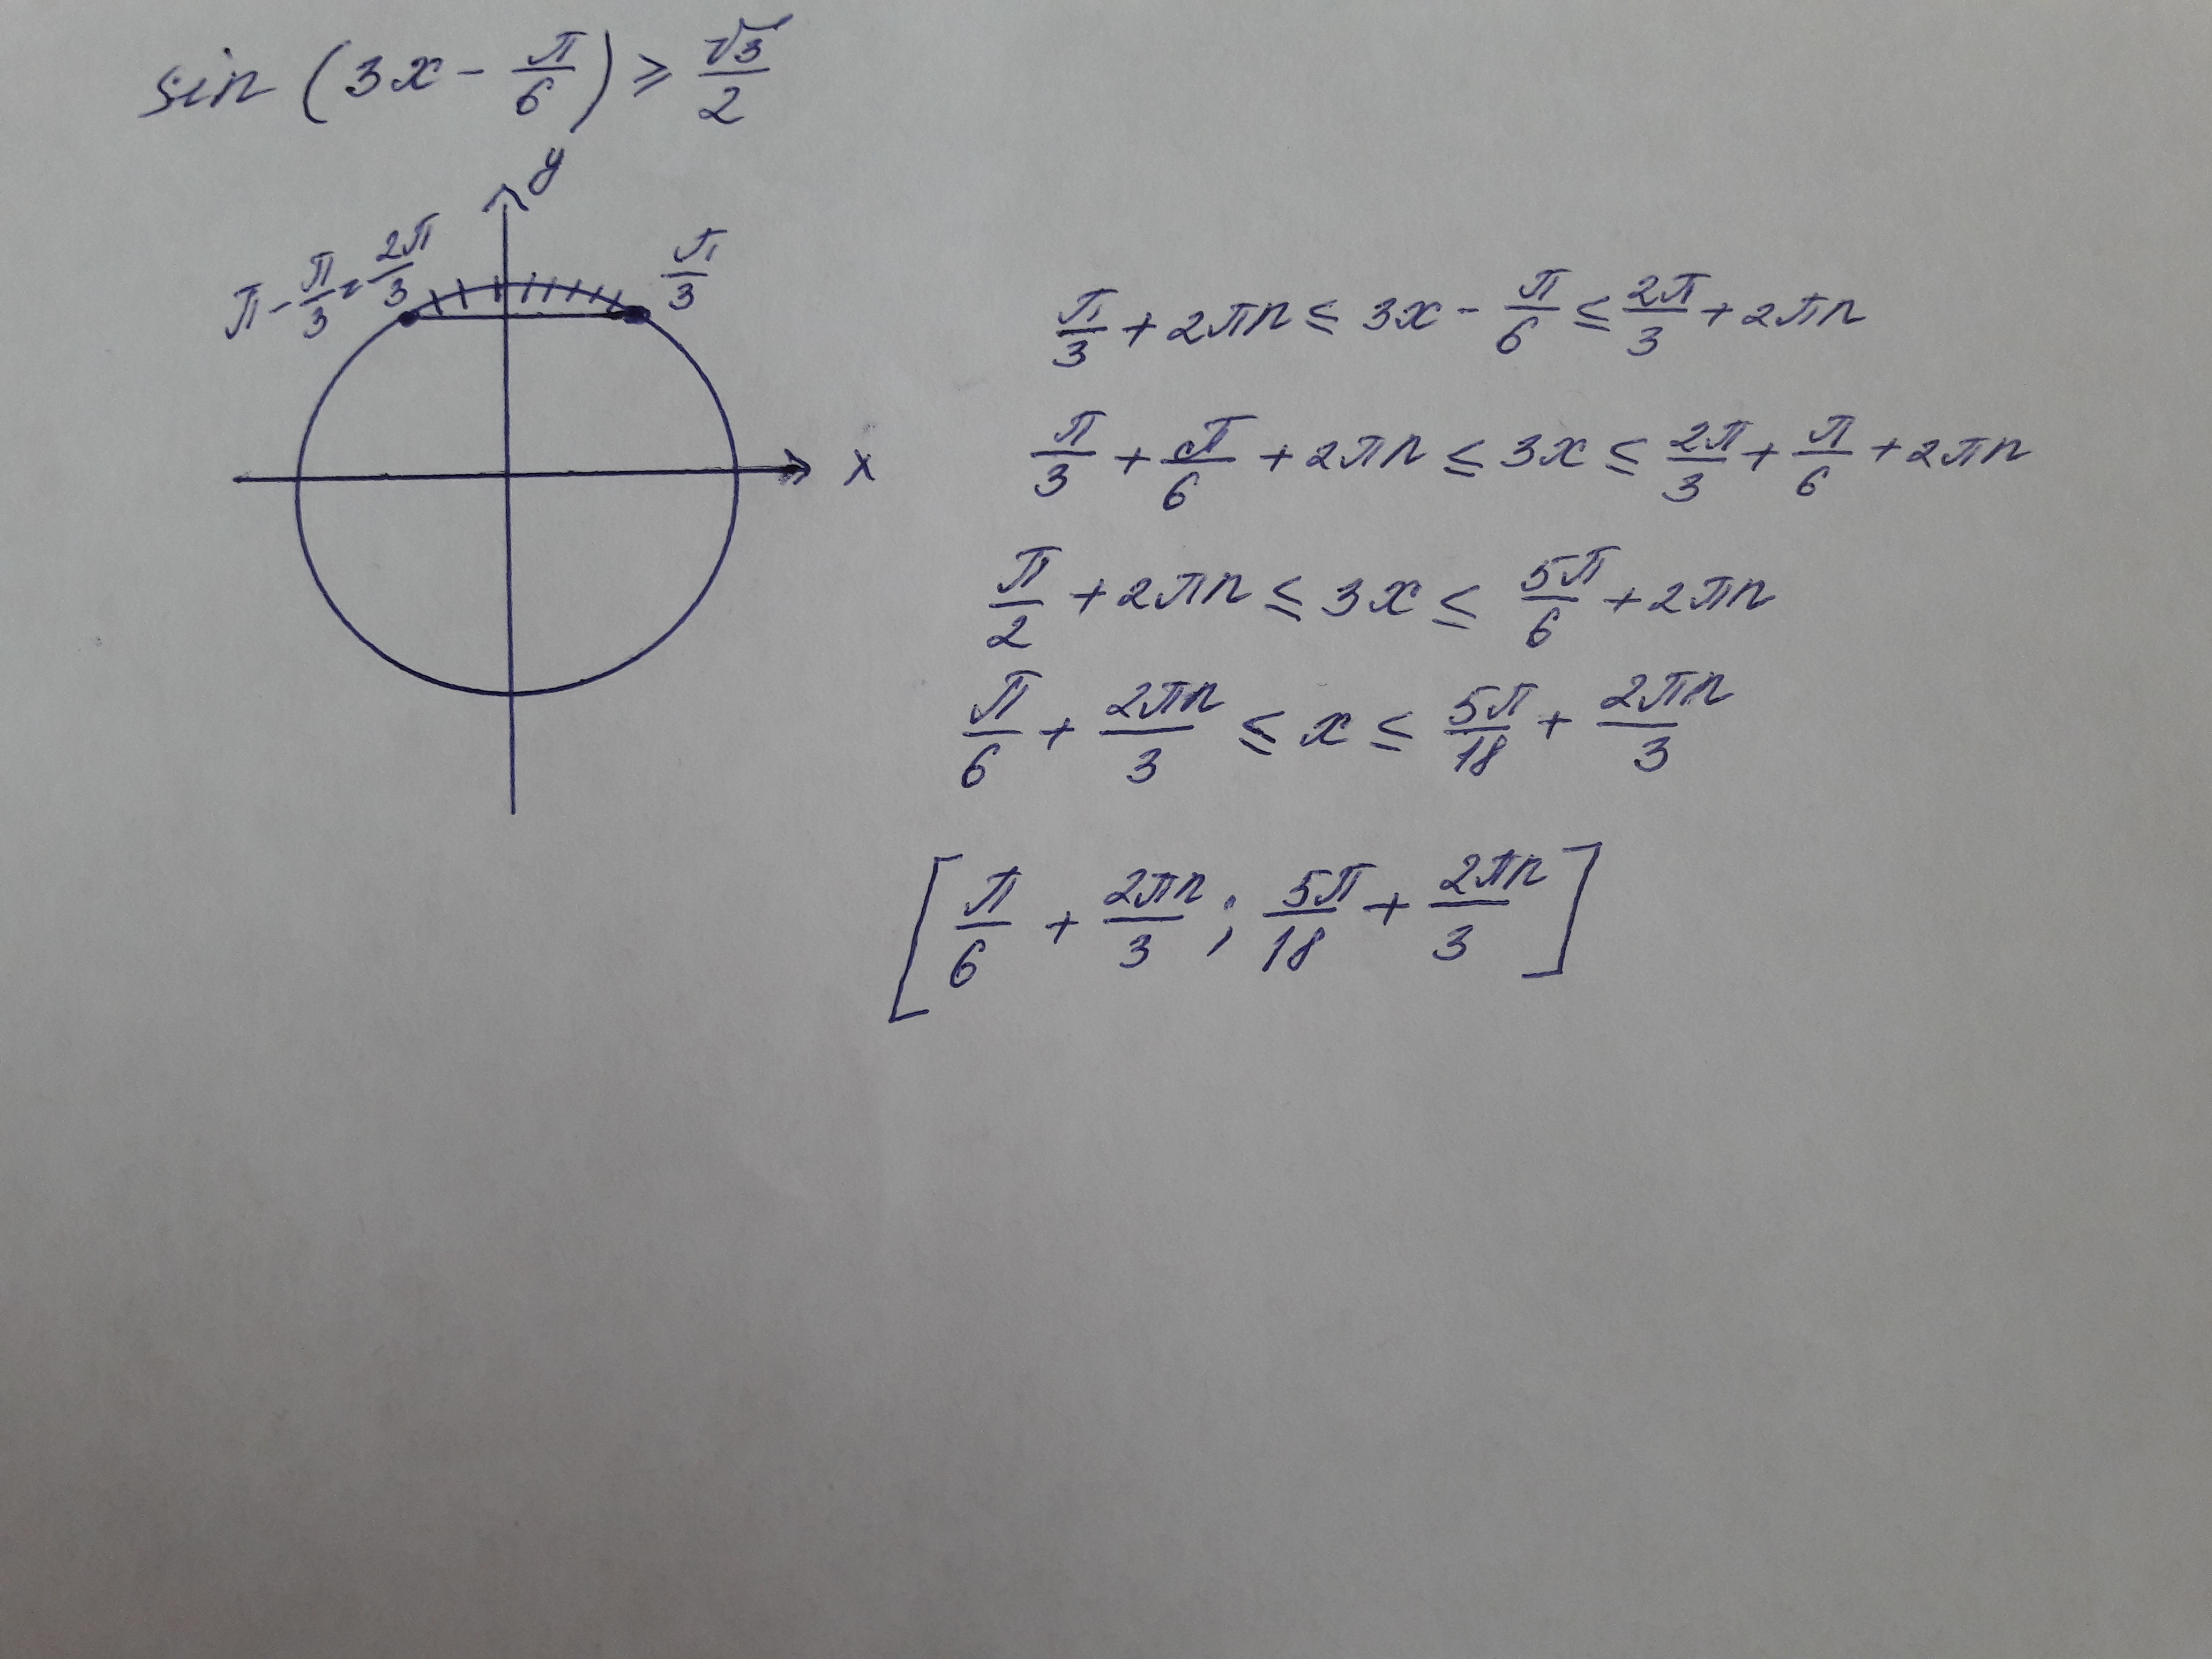 sin (3x - π/6) ≥ √3/2
y
π - π/3 = 2π/3
π/3
x
π/3 + 2πn ≤ 3x - π/6 ≤ 2π/3 + 2πn
π/3 + π/6 + 2πn ≤ 3x ≤ 2π/3 + π/6 + 2πn
π/2 + 2πn ≤ 3x ≤ 5π/6 + 2πn
π/6 + 2πn/3 ≤ x ≤ 5π/18 + 2πn/3
[π/6 + 2πn/3 ; 5π/18 + 2πn/3]